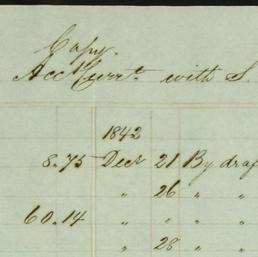 Copy.
Acc Currt. with S.
1842
8.75 Decr 21 By draf
" 26 " "
60.14 " " " "
" 28 " "